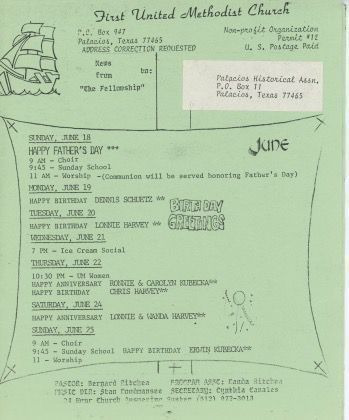 First United Methodist Church
P.O. Box 947
Palacios, Texas 77465
ADDRESS CORRECTION REQUESTED
Non-profit Organization
Permit #12
U. S. Postage Paid
News
from
"The Fellowship"
to:
Palacios Historical Assn.
P.O. Box 11
Palacios, Texas 77465
June
SUNDAY, JUNE 18
HAPPY FATHER'S DAY ***
9 AM - Choir
9:45 - Sunday School
11 AM - Worship -(Communion will be served honoring Father's Day)
MONDAY, JUNE 19
HAPPY BIRTHDAY DENNIS SCHUETZ **
BIRTHDAY GREETINGS
TUESDAY, JUNE 20
HAPPY BIRTHDAY LONNIE HARVEY **
WEDNESDAY, JUNE 21
7 PM - Ice Cream Social
THURSDAY, JUNE 22
10:30 PM - UM Women
HAPPY ANNIVERSARY RONNIE & CAROLYN KUBECKA**
HAPPY BIRTHDAY CHRIS HARVEY**
SATURDAY, JUNE 24
HAPPY ANNIVERSARY LONNIE & WANDA HARVEY**
SUNDAY, JUNE 25
9 AM - Choir
9:45 - Sunday School HAPPY BIRTHDAY ERWIN KUBECKA**
11 - Worship
PASTOR: Bernard Ritchea PROGRAM ASST: Ritchea
MUSIC DIR: Stan SECRETARY: Cynthia Canales
24 Hour Church Answering (512) 972-